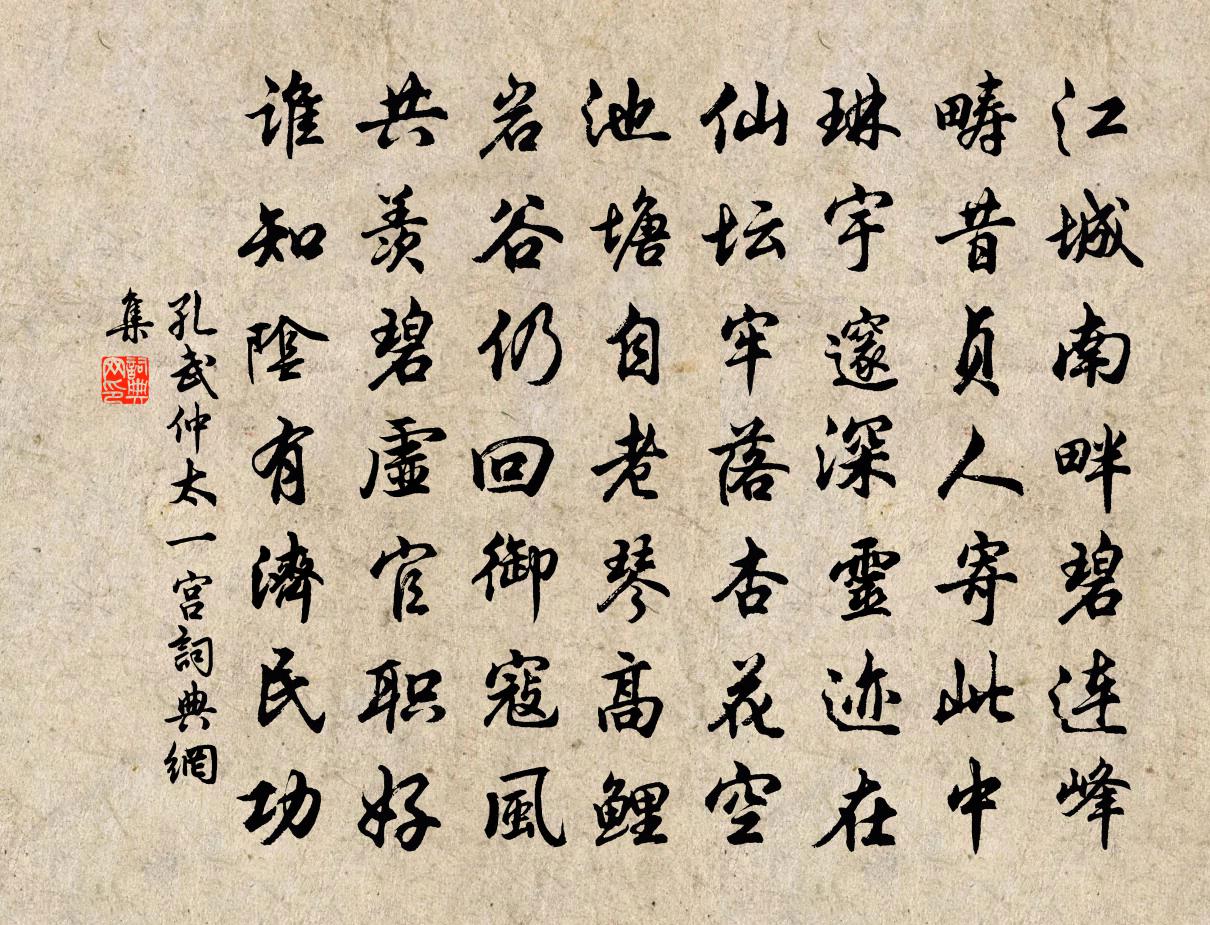 江城南畔碧連峰
畴昔貞人寄此中
琳宇邃深靈迹在
仙坛牢落杏花空
池塘自老琴高鲤
岩谷仍回御寇風
共羡碧虛官职好
谁知陰有濟民功
孔武仲太一宫詞典網
集
詞典
网印